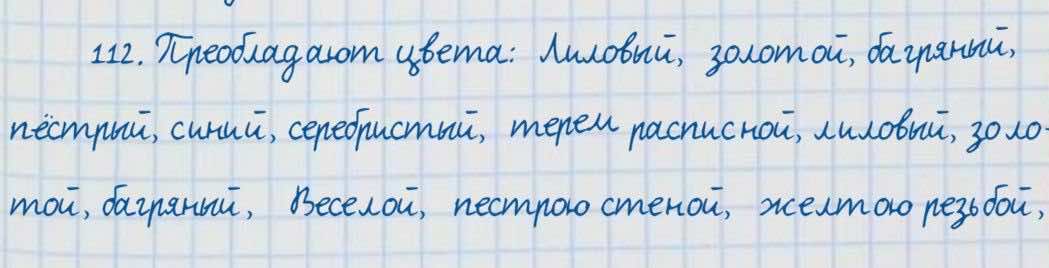 112. Преобладают цвета: Лиловый, золотой, багряный,
пёстрый, синий, серебристый, терем расписной, лиловый, золо-
той, багряный, Веселой, пестрою стеной, желтою резьбой,